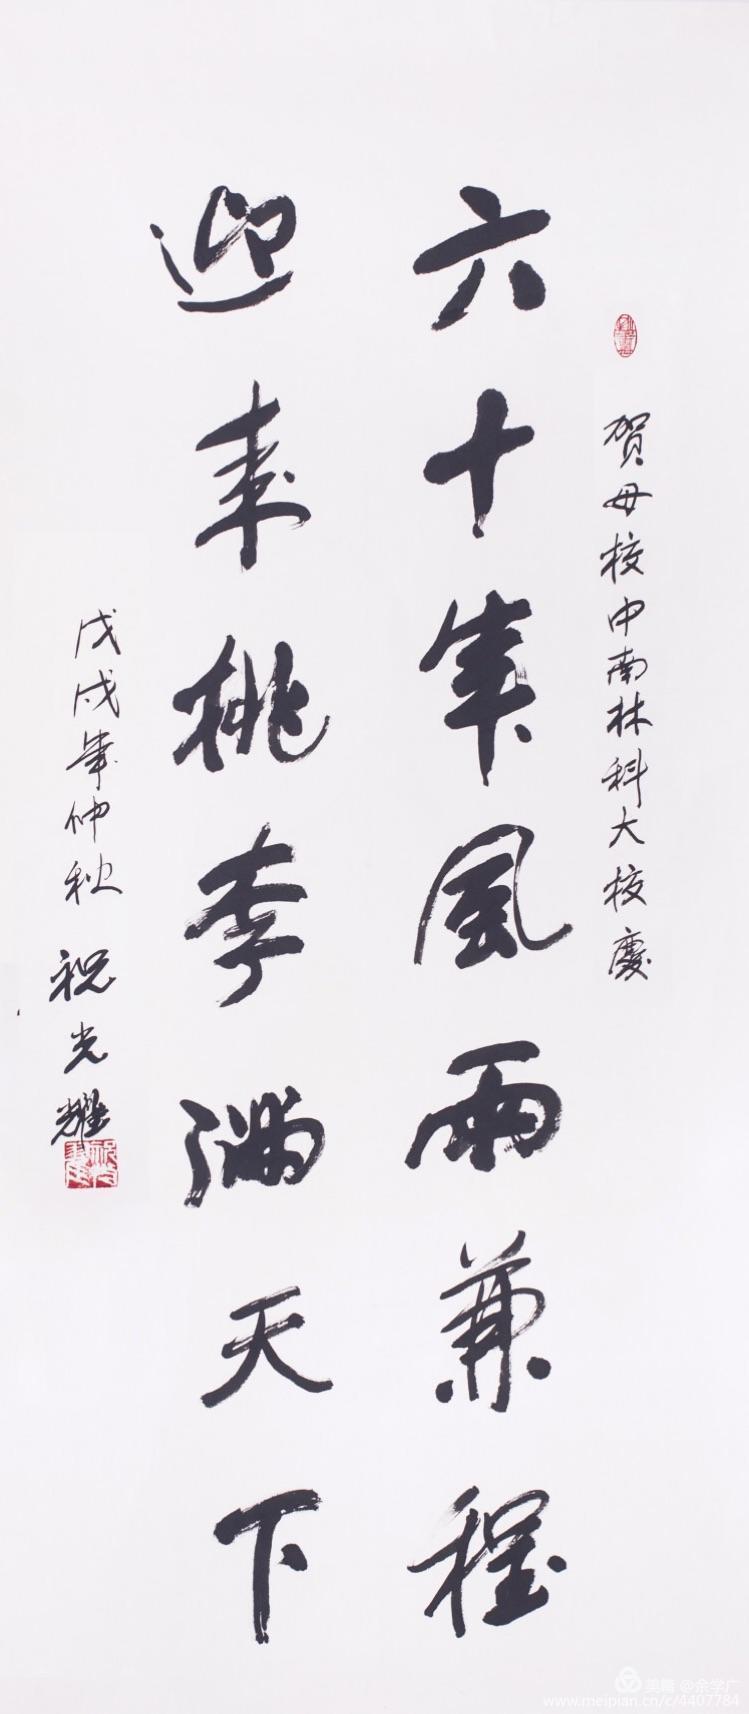 贺母校中南林科大校慶
六十年風雨兼程
迎来桃李满天下
戊戌年仲秋 祝光耀
美篇 @余学广
www.meipian.cn/c/4407784